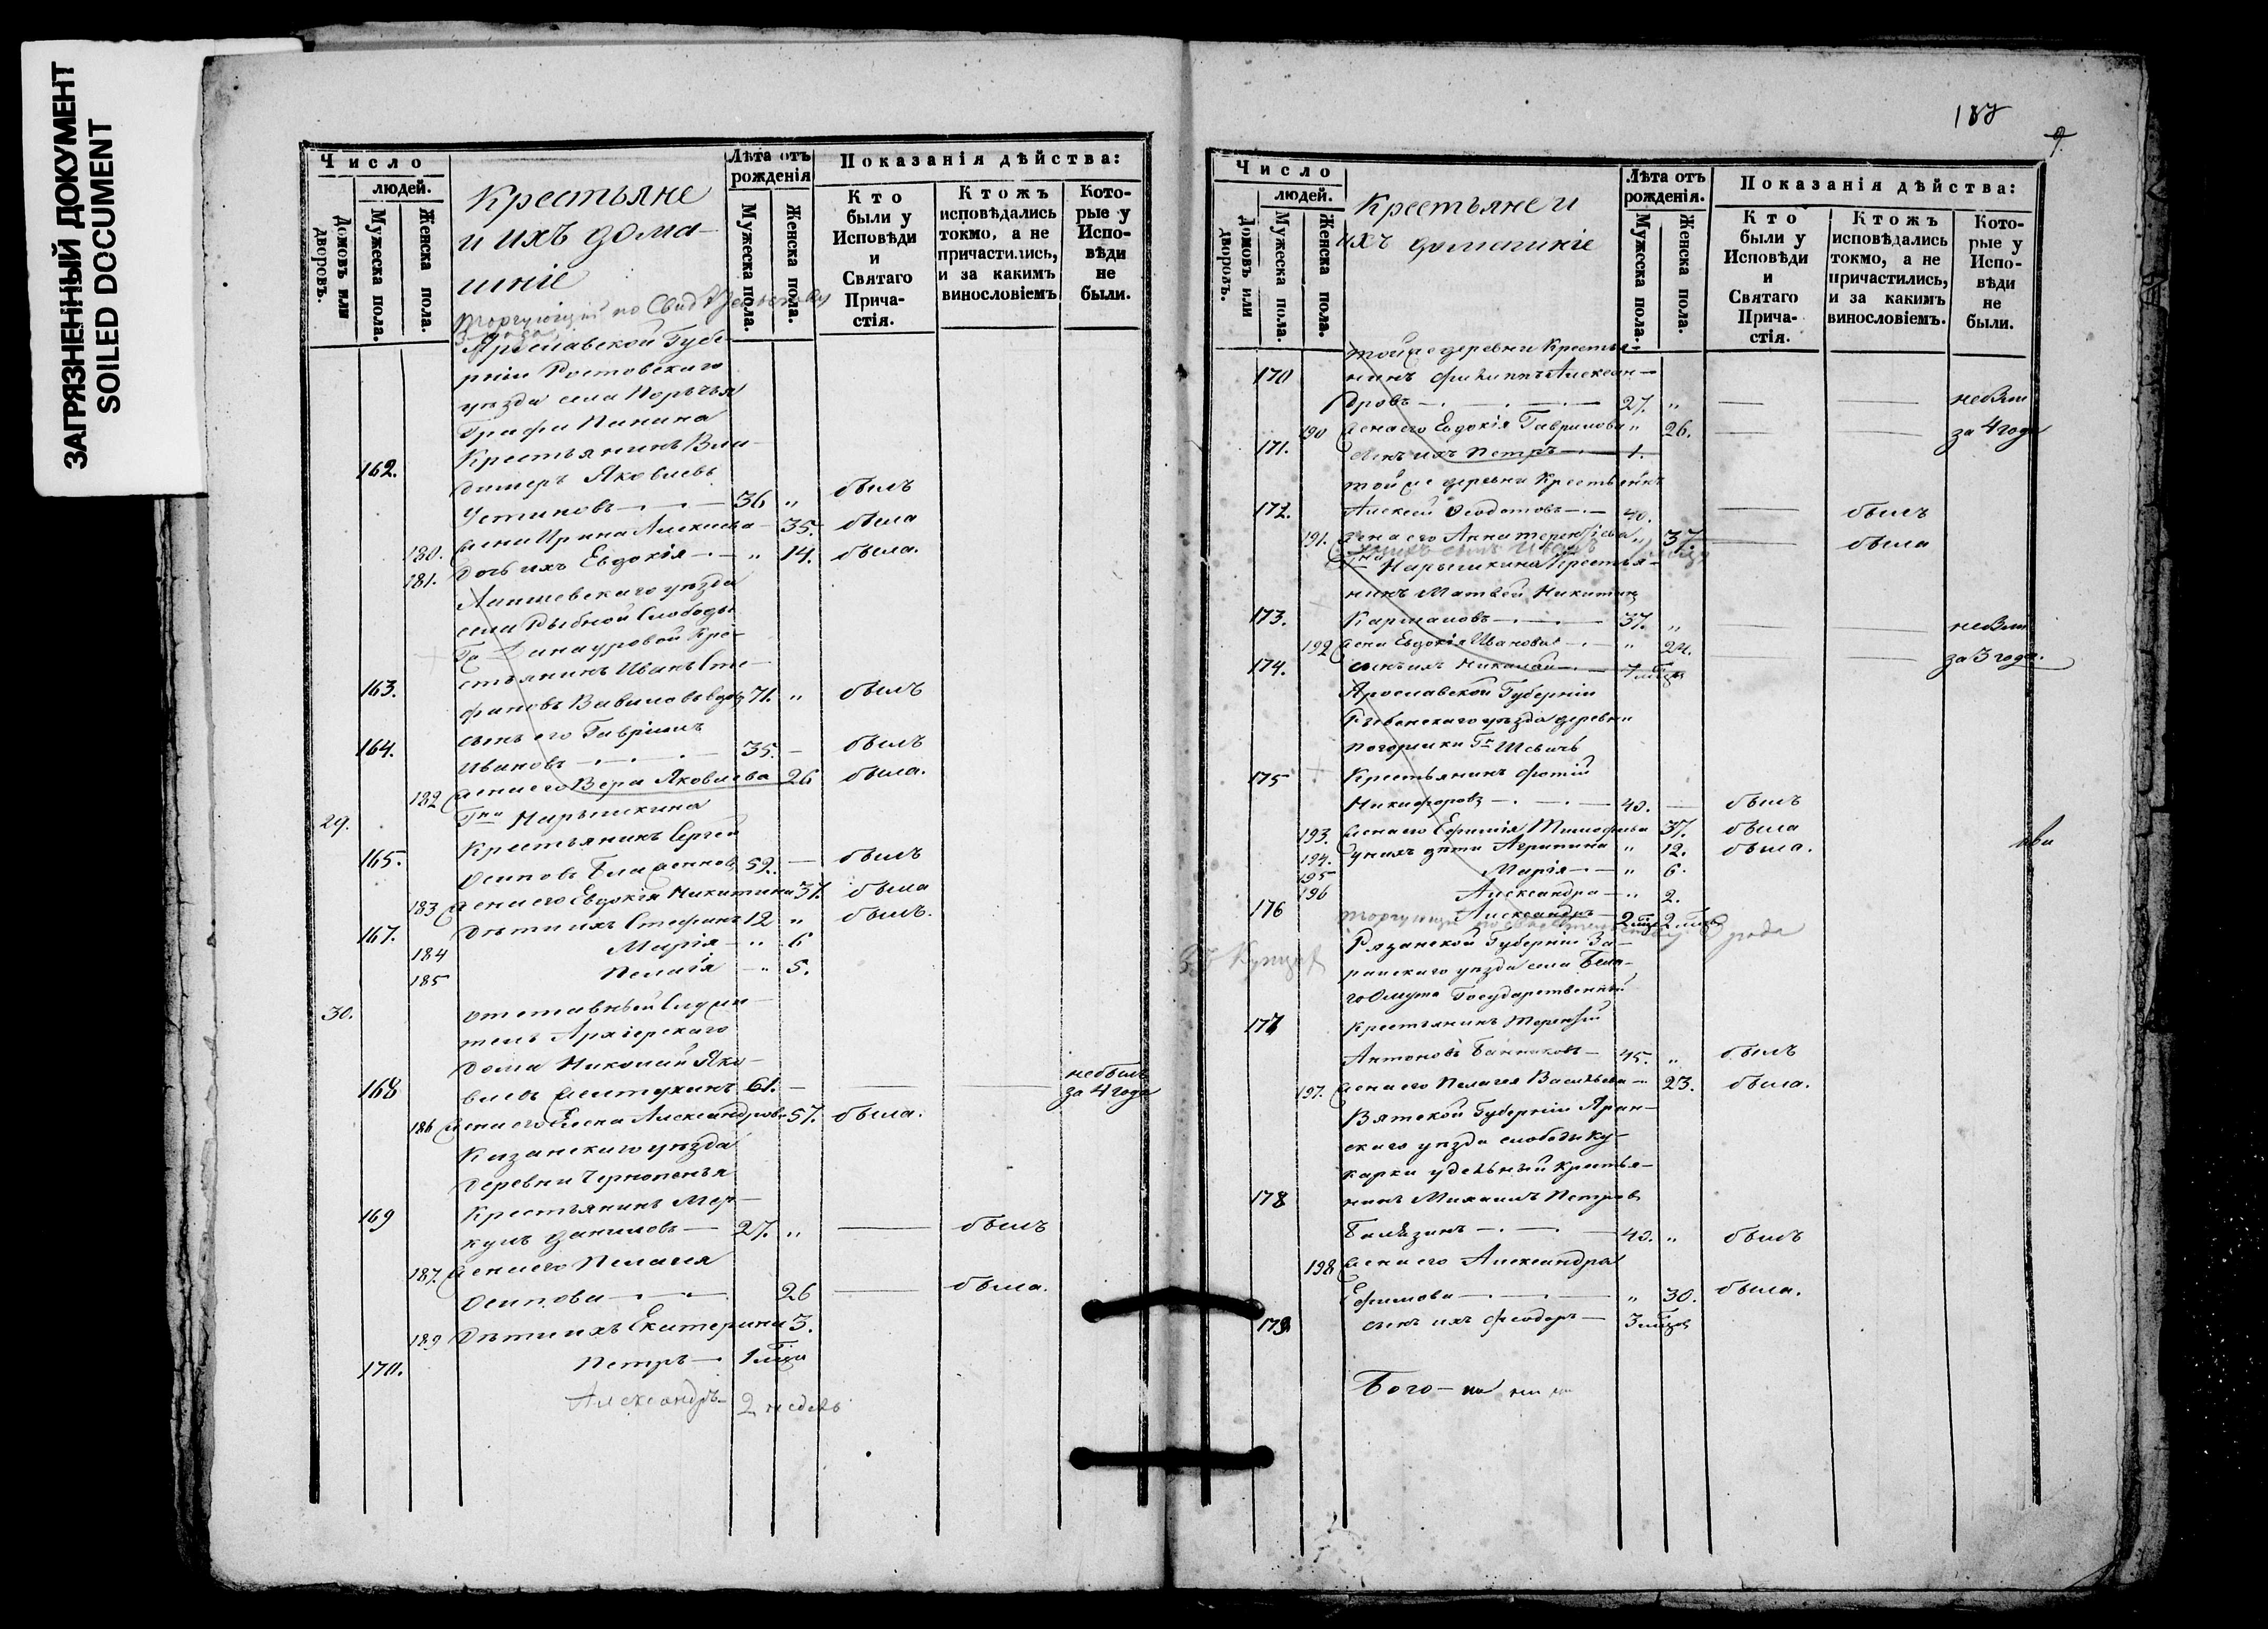 ЗАГРЯЗНЕННЫЙ ДОКУМЕНТ
SOILED DOCUMENT
Число
людей.
Домовъ или дворовъ.
Мужеска пола.
Женска пола.
Крестьяне
и ихъ дома-
шніе
Лѣта отъ рожденія
Мужеска пола.
Женска пола.
Показанія дѣйства:
Кто были у Исповѣди и Святаго Прича-стія.
Ктожъ исповѣдались токмо, а не причастились, и за какимъ винословіемъ
Кото-рые у Испо-вѣди не были.
торгующій по Свид
Ярославской Губе-
рніи Ростовскаго
уѣзда села Порѣчья
Графа Панина
162. Крестьянинъ Вла-
димеръ Яковлевъ
Устиновъ 36 " былъ
180. жена Ирина Алексиева 35. была
181. дочь ихъ Евдокія " 14. была.
Лаишевскаго уѣзда
села Рыбной Слободы
Кре-
стьянинъ Иванъ Сте-
163. фановъ Вавиловъ вдовъ 71. " былъ
164. сынъ его Гавріилъ
Ивановъ 35. - былъ
182 жена его Вера Яковлева 26 была.
29. Гна Нарышкина
165. Крестьянинъ Сергей
Осиповъ 59. - былъ
183 жена его Евдокія Никитина 37. была
167. дѣти ихъ Стефанъ 12 " былъ.
184 Марія " 6
185 Пелагія " 5.
30. отставный служи-
тель Архіерскаго
дома Николай Яко-
168 влевъ 61. - не былъ за 4 года
186 жена его Елена Александрова 57. была.
Казанскаго уѣзда
деревни Чернопенья
169 Крестьянинъ Мер-
кулъ Даниловъ 27. " былъ
187. жена его Пелагея
Осипова 26 была.
189 дѣти ихъ Екатерина 3.
170. Петръ 1 мѣсца
Александръ 2 недель
187
9.
Число
людей.
Домовъ или дворовъ.
Мужеска пола.
Женска пола.
Крестьяне и
ихъ домашніе
Лѣта отъ рожденія.
Мужеска пола.
Женска пола.
Показанія дѣйства:
Кто были у Исповѣди и Святаго Прича-стія.
Ктожъ исповѣдались токмо, а не причастились, и за какимъ винословіемъ.
Кото-рые у Испо-вѣди не были.
той же деревни Крестья-
170 нинъ Филиппъ Алексан-
дровъ 27. " не были
190 жена его Евдокія Гаврилова " 26. за 4 года
171. сынъ ихъ Петръ 1.
той же деревни Крестьянинъ
172. Алексей Ѳеодотовъ 40. былъ
191. жена его Анна Терентіева " 37. была
Гна Нарышкина Крестья-
нинъ Матвей Никитинъ
173. 37. " не были
192 жена Евдокія Иванова " 24.
174. сынъ ихъ Николай 7 мѣсцъ за 3 года.
Ярославской Губерніи
Рыбенскаго уѣзда деревни
Погорилки Гж Шевичъ
175 Крестьянинъ Фотій
Никифоровъ 40. былъ
193. жена его Ефимія Тимофеева 37. была
194. у нихъ дѣти Агрипина " 12. была.
195 Марія " 6.
196 Александра " 2.
176 Александръ 2 мѣсц
торгующій 3 года
Рязанской Губерніи За-
райскаго уѣзда села Бело-
го Омута Государственный
177 Крестьянинъ Терентій
Антоновъ Банниковъ 45. " былъ
197. жена его Пелагея Васильева 23. была.
Вятской Губерніи Яран-
скаго уѣзда слободы Ку-
карки удельный крестья-
178 нинъ Михаилъ Петровъ
40. " былъ
198 жена его Александра
Ефимова " 30. была.
179 сынъ ихъ Феодоръ 3 мѣсцъ
Бого-